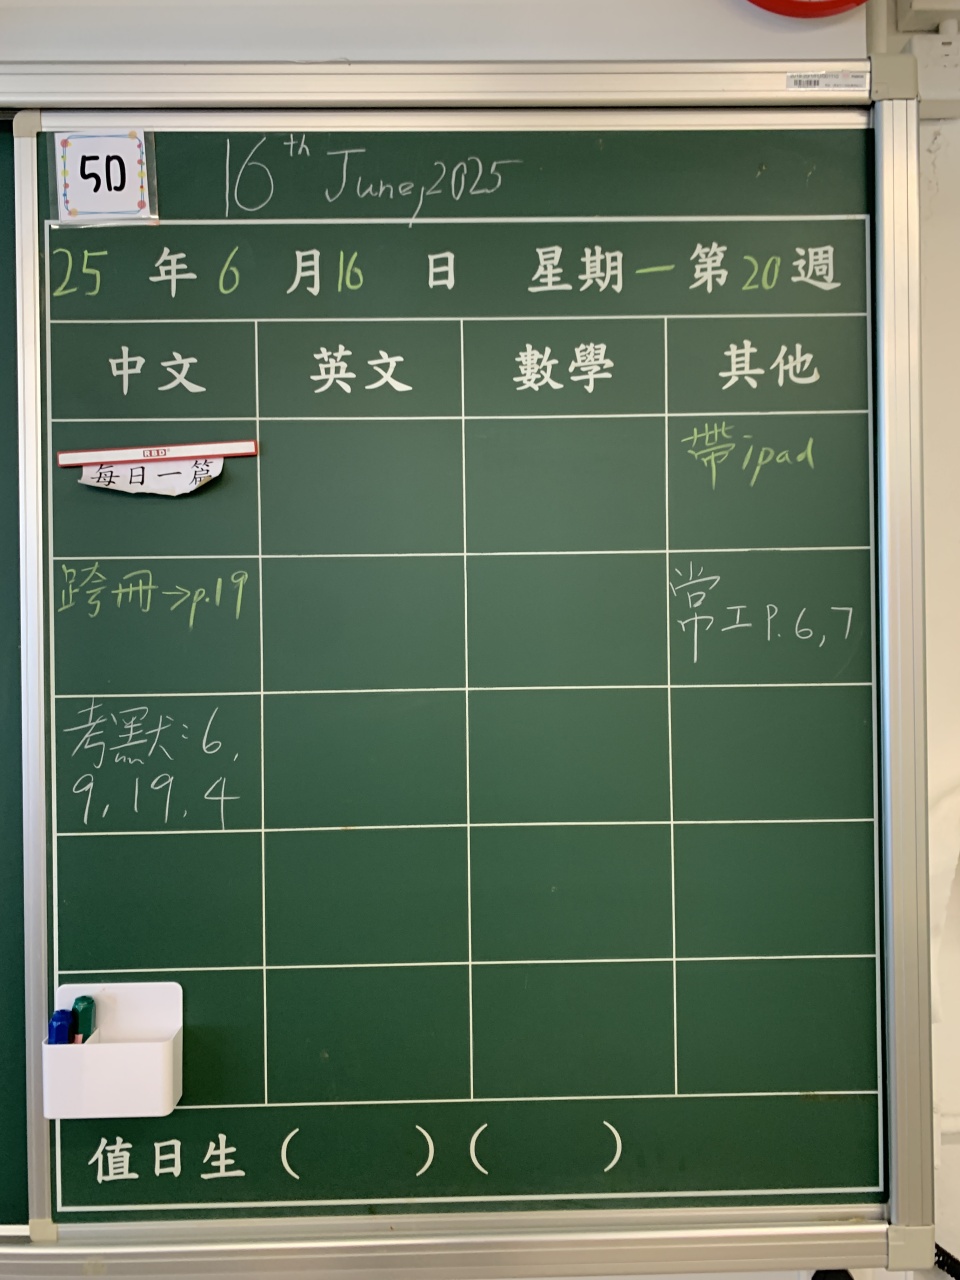 5D
16th June, 2025
25 年 6 月 16 日 星期一 第 20 週
中文 英文 數學 其他
RBD
每日一篇
帶ipad
跨冊→p.19
常工 P. 6, 7
考默: 6,
9, 19, 4
值日生 ( ) ( )